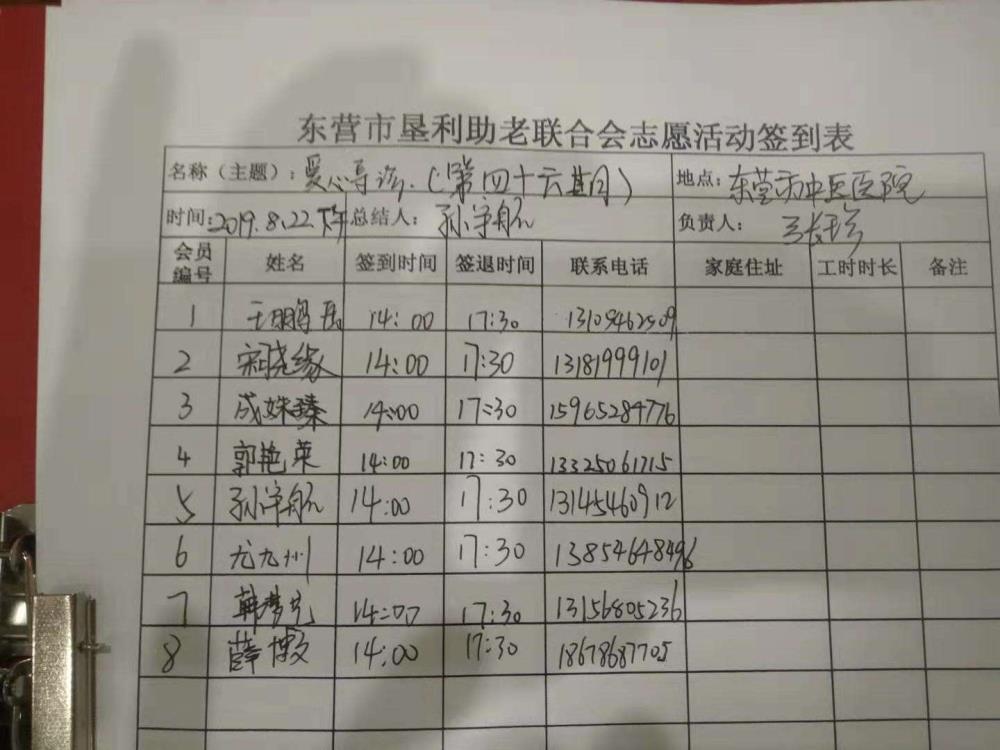 东营市垦利助老联合会志愿活动签到表
名称（主题）：爱心导诊.（第四十六期） 地点：东营市中医医院
时间：2019.8.22下午 总结人：孙宇航 负责人：
会员编号 姓名 签到时间 签退时间 联系电话 家庭住址 工时时长 备注
1 14：00 17:30 13109462509
2 宋晓缘 14：00 17:30 13181999101
3 成姝臻 14:00 17:30 15965284776
4 郭艳英 14:00 17:30 13325061715
5 孙宇航 14:00 17:30 13145460912
6 尤九州 14:00 17:30 13854648496
7 韩梦凡 14:00 17:30 13156805236
8 薛 14:00 17:30 18678687705